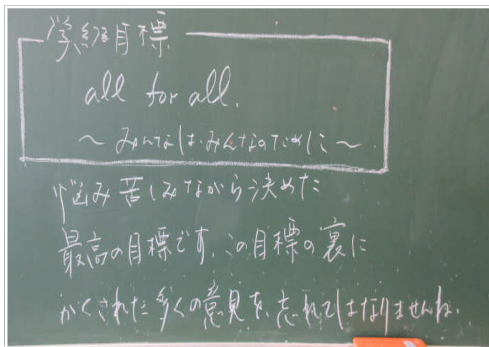 学級目標
all for all.
～みんなはみんなのために～
悩み苦しみながら決めた
最高の目標です。この目標の裏に
かくされた多くの意見を、忘れてはなりませんね。